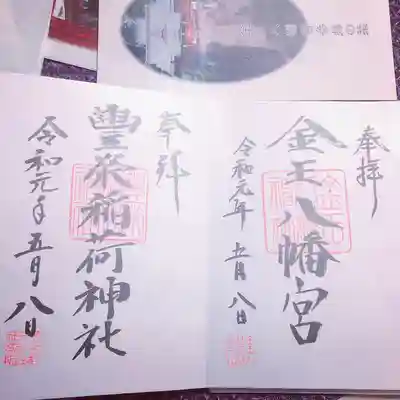 奉拝
金王八幡宮
令和元年 五月 八日
奉拝
豊栄稲荷神社
令和元年 五月 八日